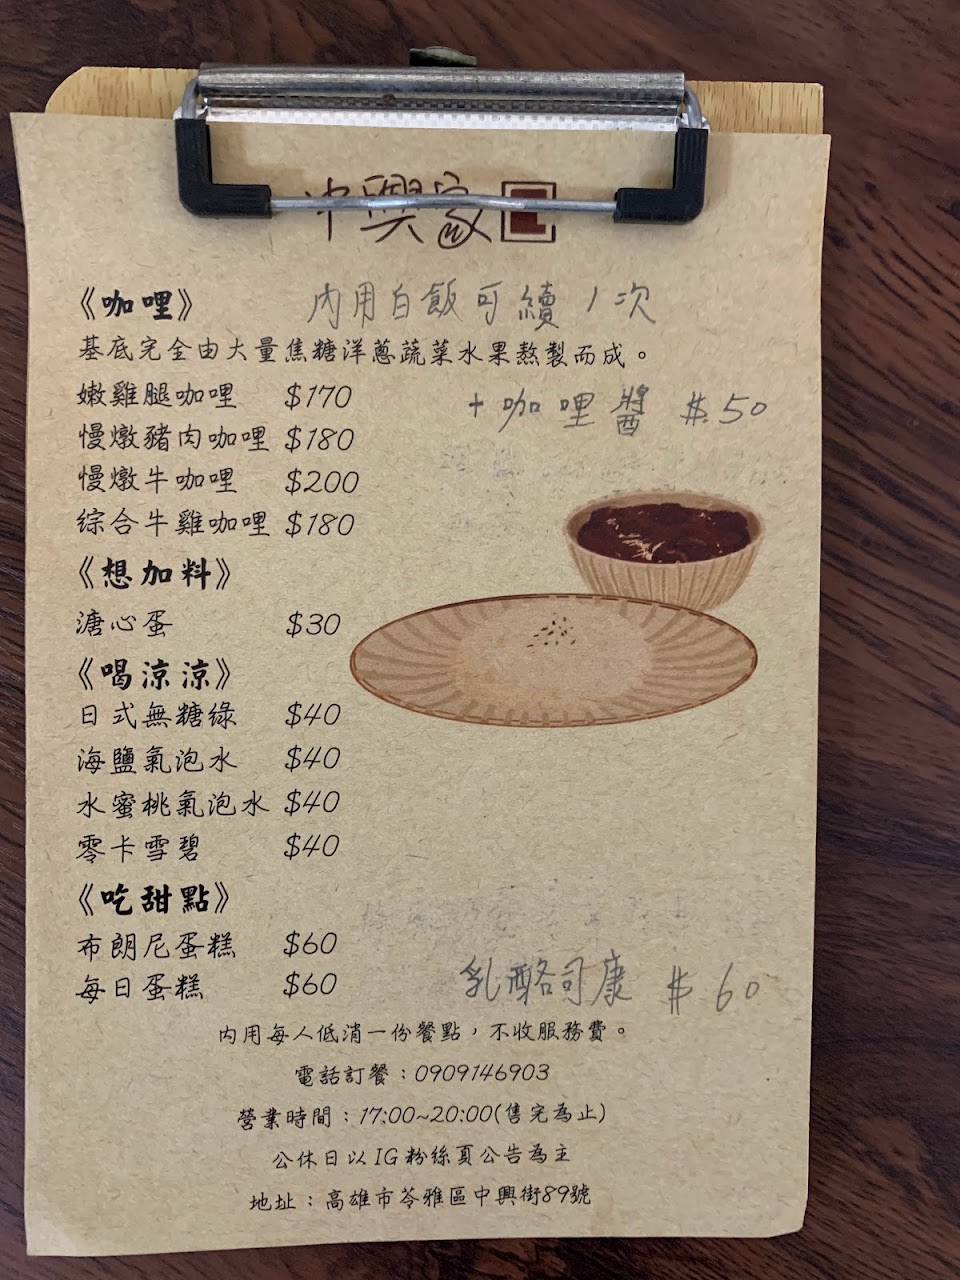 中興家
《咖哩》 內用白飯可續1次
基底完全由大量焦糖洋蔥蔬菜水果熬製而成。
嫩雞腿咖哩 $170
+咖哩醬 $50
慢燉豬肉咖哩 $180
慢燉牛咖哩 $200
綜合牛雞咖哩 $180
《想加料》
溏心蛋 $30
《喝涼涼》
日式無糖綠 $40
海鹽氣泡水 $40
水蜜桃氣泡水 $40
零卡雪碧 $40
《吃甜點》
布朗尼蛋糕 $60
每日蛋糕 $60
乳酪司康 $60
內用每人低消一份餐點，不收服務費。
電話訂餐：0909146903
營業時間：17:00~20:00(售完為止)
公休日以IG粉絲頁公告為主
地址：高雄市苓雅區中興街89號